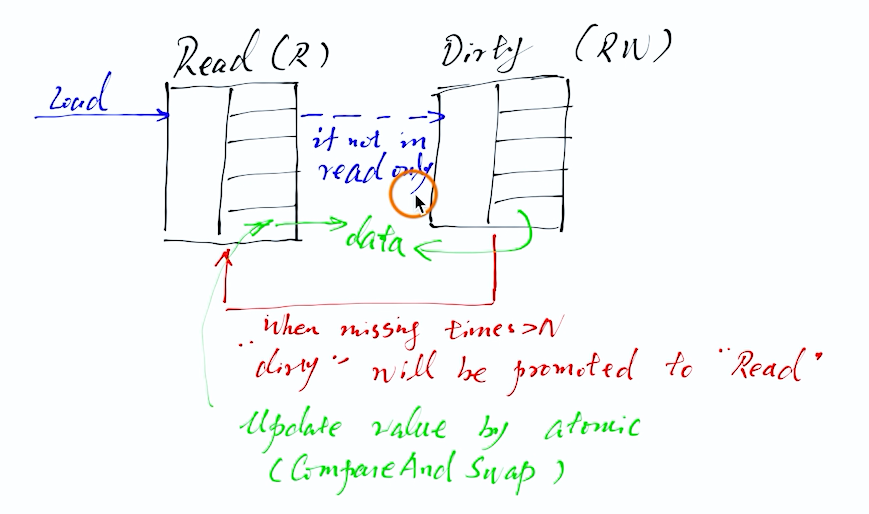 Read (R)
Dirty (RW)
Load
if not in
read only
data
When missing times > N
"dirty" will be promoted to "Read"
Update value by atomic
(CompareAnd Swap)